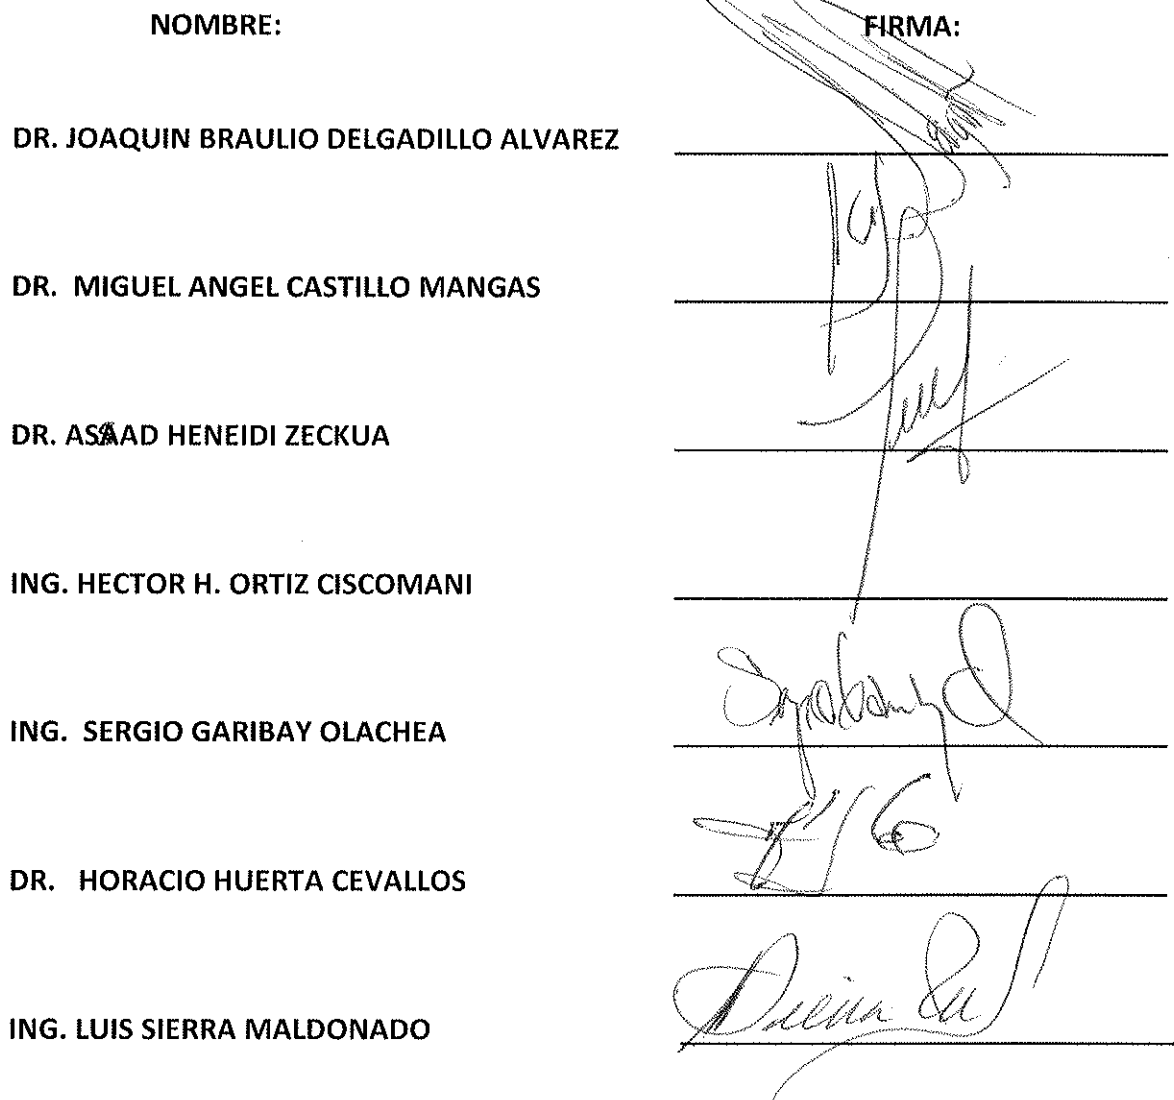 NOMBRE: FIRMA:
DR. JOAQUIN BRAULIO DELGADILLO ALVAREZ
DR. MIGUEL ANGEL CASTILLO MANGAS
DR. ASAAD HENEIDI ZECKUA
ING. HECTOR H. ORTIZ CISCOMANI
ING. SERGIO GARIBAY OLACHEA
DR. HORACIO HUERTA CEVALLOS
ING. LUIS SIERRA MALDONADO